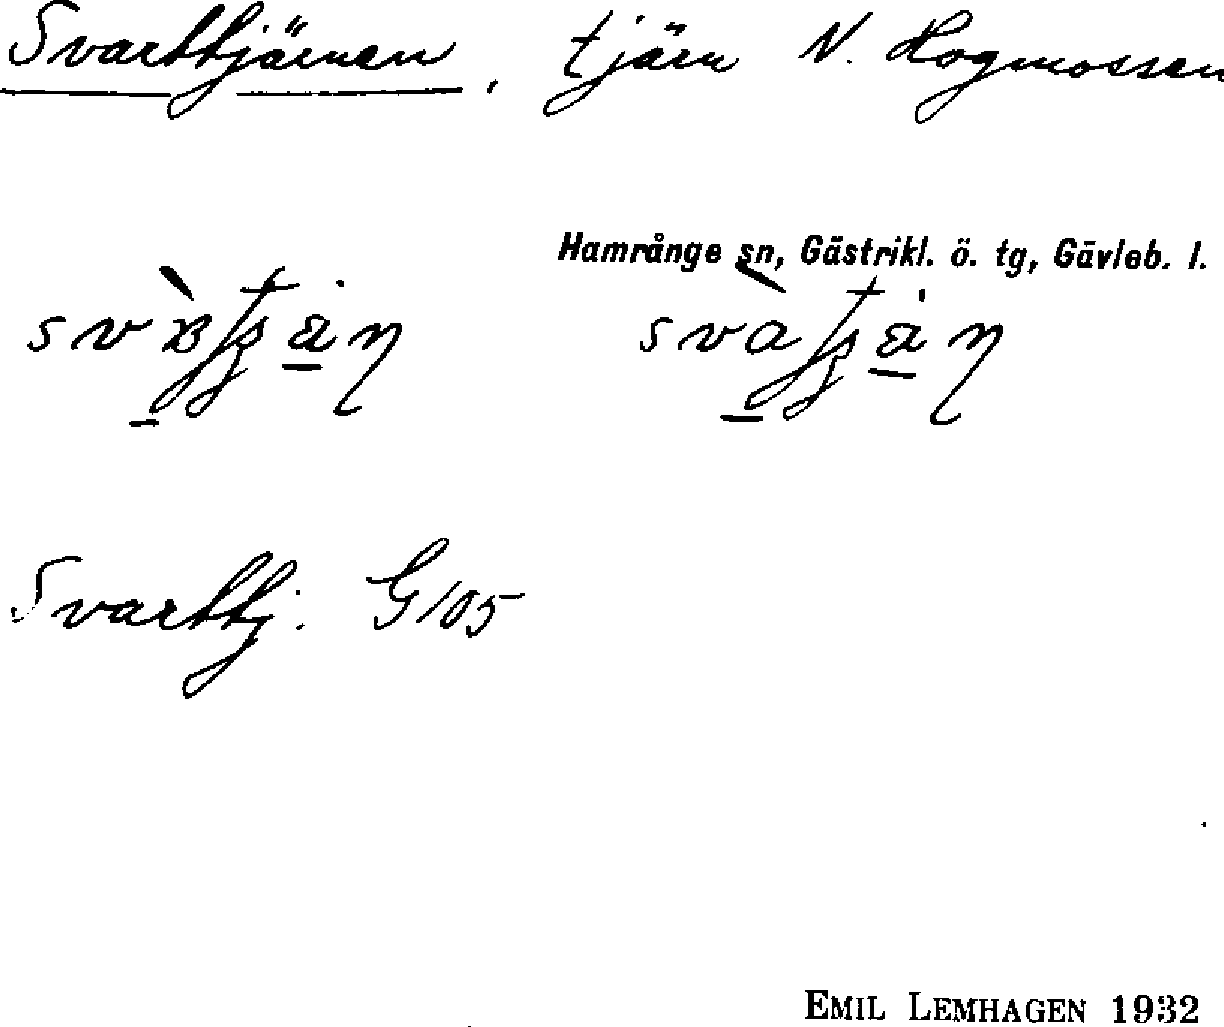 Svarttjärnen, tjärn N. Hogmossen
Hamrånge sn, Gästrikl. ö. tg, Gävleb. l.
Svarttj. G105
EMIL LEMHAGEN 1932